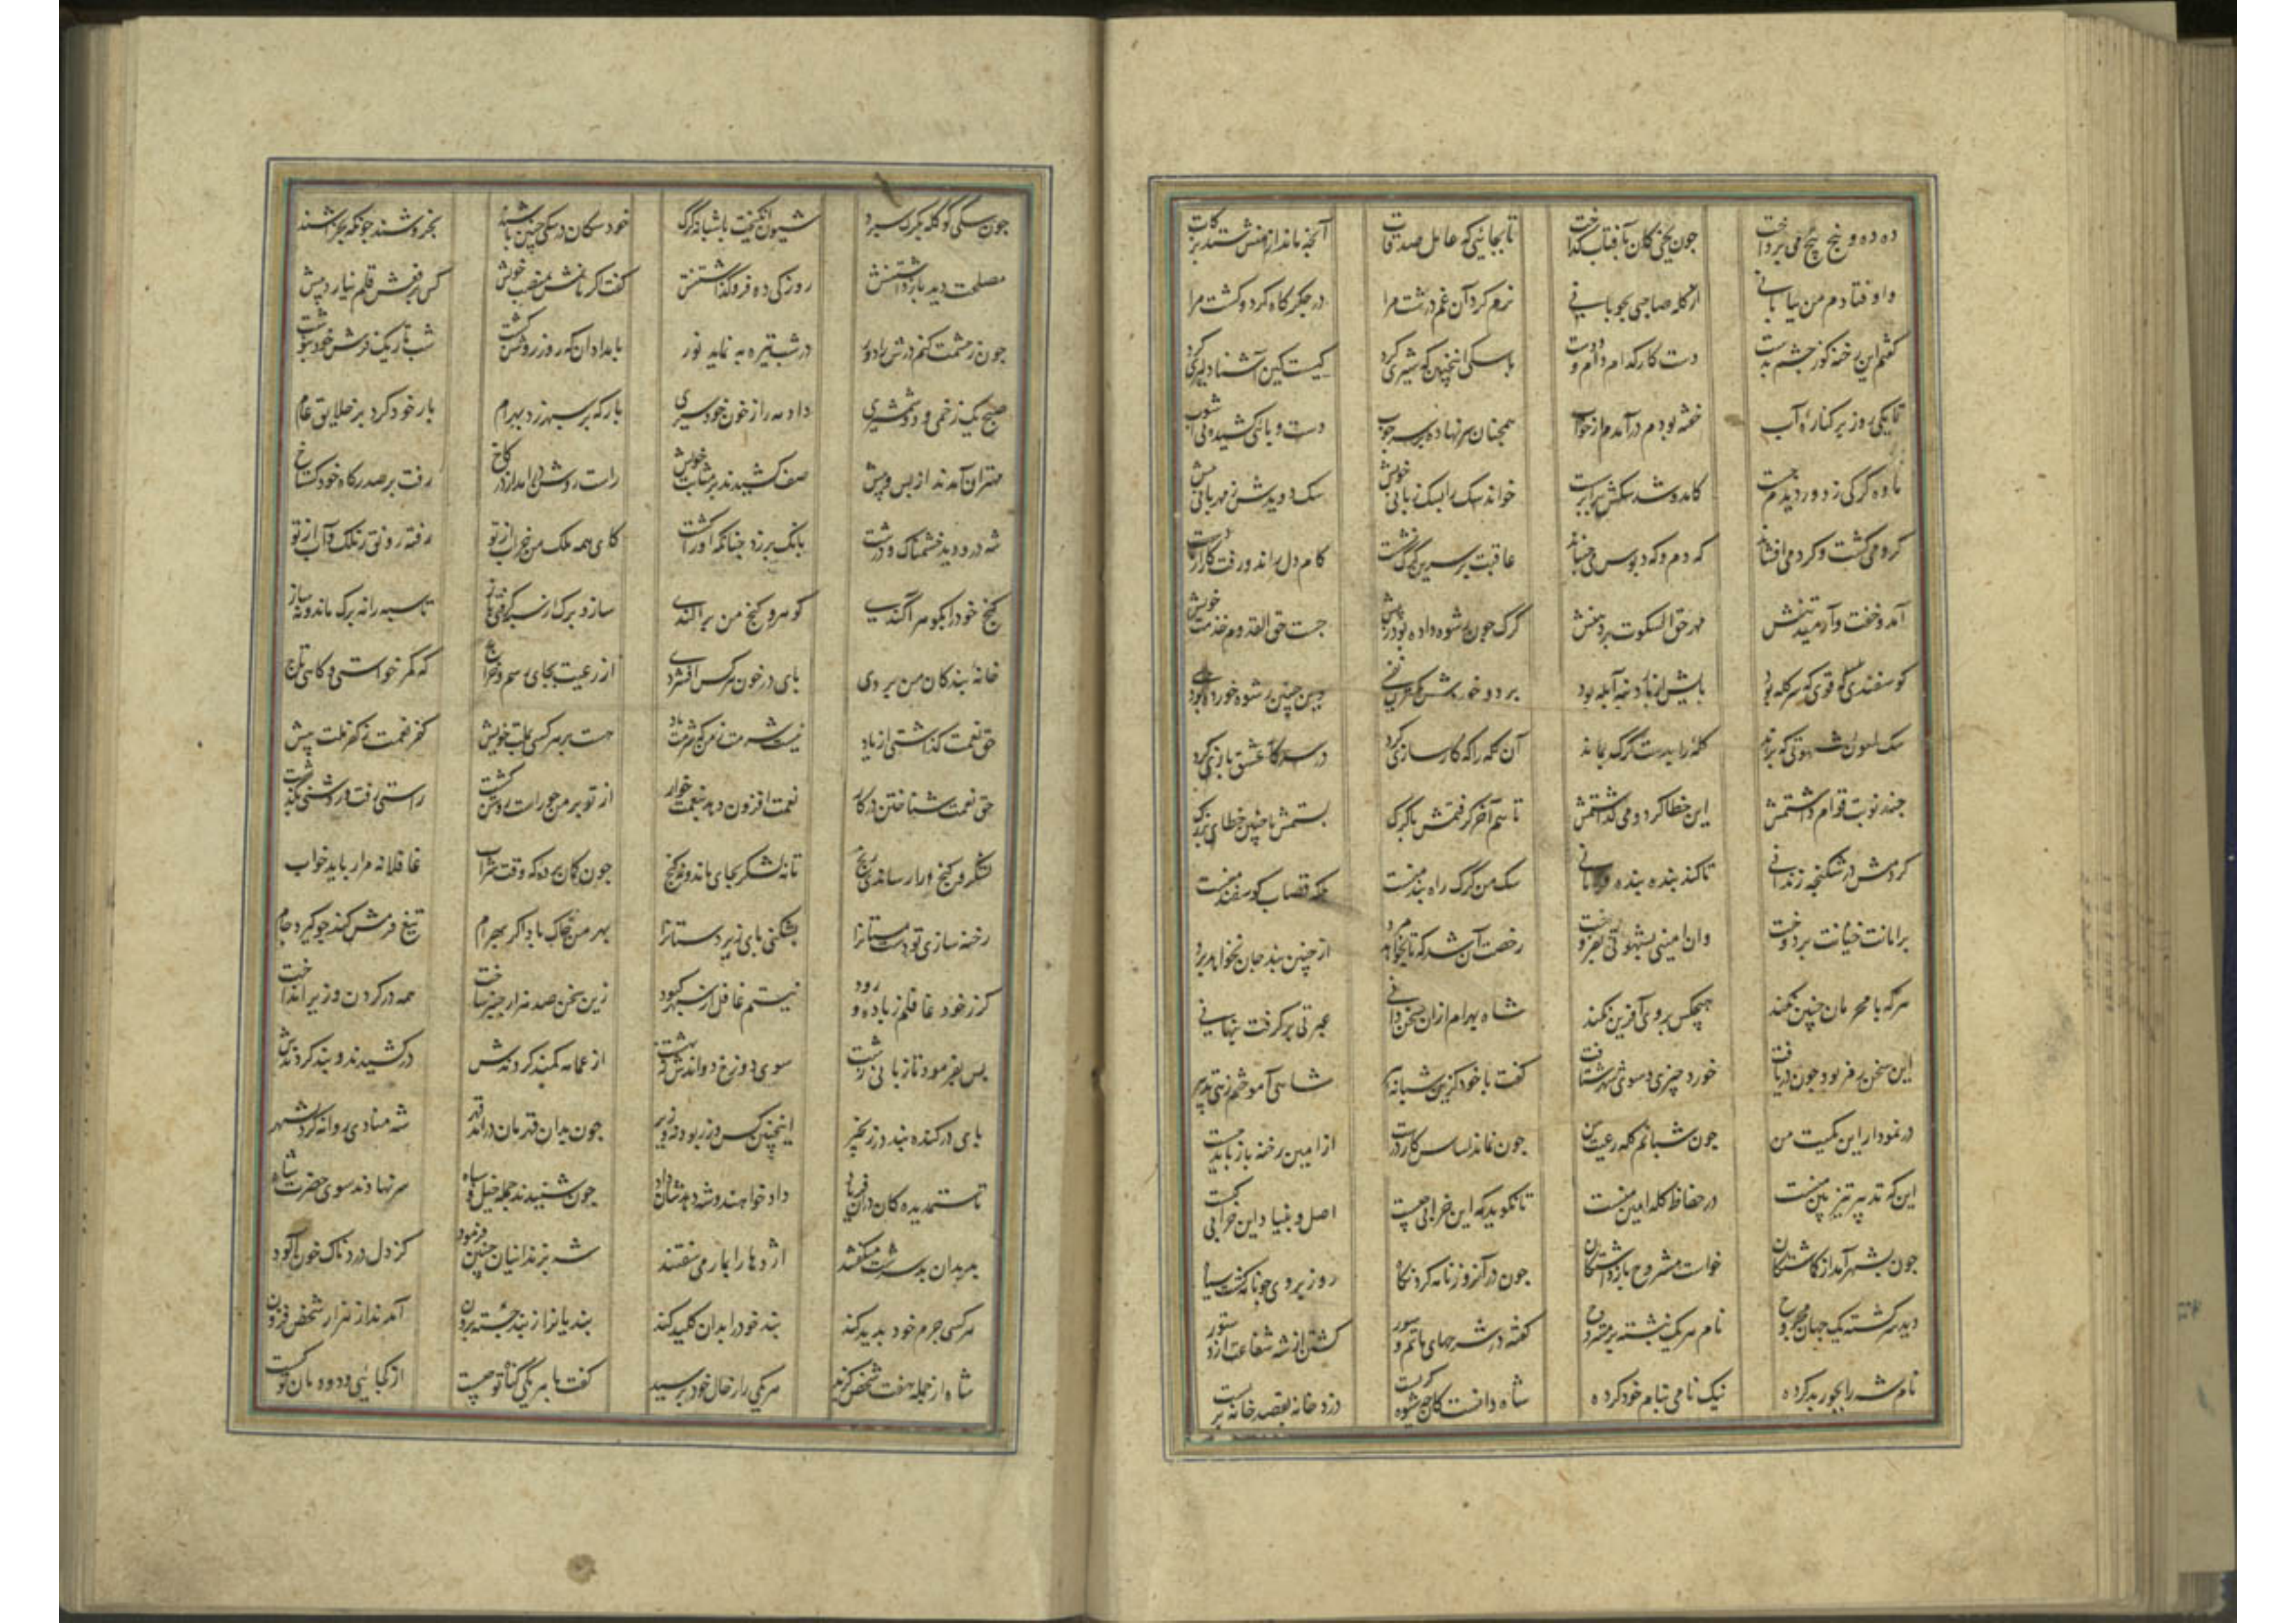 ده ده و پنج پنج می پرداخت چون یخی کان بآفتاب گداخت تا بجائی که عامل صدقات آنچه ماند از منش ستد بزکات
واوفتادم من بیابانی از گله صاحبی بچوپانی نرم کرد آن غم درشت مرا در جگر کاه کرد و کشت مرا
گفتم این رخنه گوز چشم بدست دست کار کدام دام و ددست با سگی اینچنین که شیری کرد کیست کین آشنا دلیری کرد
تا یکی روز بر کناره آب خفته بودم درآمدم از خواب همچنان سر نهاده بر سر چوب دست و پائی کشیده بی آشوب
ماده گرگی ز دور دیدم جست کامد و شد سگش برابر خواند سگ را بسگ زبانی خویش سگ دویدش ز مهربانی پیش
گرد وی گشت و گرد می افشاند که دم و که دبوس می جنباند عاقبت بر سرین گرگ نشست کام دل راند و رفت کار از دست
آمد و خفت و آرمید تنش مهر حق السکوت بر دهنش گرگ چون رشوه داده بود ز پیش جست حق القدوم خدمت خویش
گوسفندی قوی که سر گله بود پایش از بار دنبه آبله بود برد و خوردش وین چنین رشوه خورده بود بسی
سگ ملعون بشهوتی که براند گله را بدست گرگ بماند آن گله را که کارسازی کرد در سر کار عشق بازی کرد
چند نوبت قوام داشتمش این خطا کرد و می گذاشتمش تا هم آخر گرفتمش با گرگ بستمش با چنین خطای بزرگ
کردمش در شکنجه زندانی تا کند بنده بنده فرمانی سگ من گرگ راه بند منست بلکه قصاب گوسفند منست
بر امانت خیانت بردوخت وان امینی بشهوتی بفروخت رخصت آن شد که تا نخواهد مرد از چنین بند جان نخواهد برد
هر که با مجرمان چنین نکند هیچکس بر وی آفرین نکند شاه بهرام ازان سخن دانی عبرتی بر گرفت پنهانی
این سخن رمز بود چون دریافت خورد چیزی و سوی شهر شتافت گفت با خود کزین شبانه پیر شاهی آموختم زهی تدبیر
در نمودار این کمیت من چون شبانم گله رعیت من چون نماند اساس کار درست از امین رخنه باز باید جست
این که تدبیر تیزبین منست در حفاظ گله امین منست تا نگوید که این خرابی چیست اصل و بنیاد این خرابی کیست
چون بشهر آمد از گماشتگان خواست مشروح بازداشتگان چون در آن روزنامه کرد نگاه روز بر وی چو نامه گشت سیاه
دید سرگشته یک جهان مجروح نام هر یک نبشته بر مشروح گفته در شرحهای ماتم و سور کشتن از شه شفاعت از دستور
نام شه را بجور بد کرده نیک نامی بنام خود کرده شاه دانست کان چه شیوه گریست دزد خانه بقصد خانه بریست
چون سگی کو گله بگرگ سپرد شیون انگیخت با شبانه گرد خود سگان در سگی چنین باشند بخروشند چونکه بخراشند
مصلحت دید بازداشتنش روزکی ده فروگذاشتنش گفت اگر مانمش بمنصب خویش کس بر فعلش قلم نیارد پیش
چون ز حشمت کنم درش را دور در شب تیره به نماید نور بامدادان که روز روشن گشت شب تاریک فرش خود بنوشت
صبح یک زخمی دو شمشیری داد مه را ز خون خود سیری بارگه بر سپهر زد بهرام بار خود کرد بر خلایق عام
مهتران آمدند از پس و پیش صف کشیدند بر مثابت خویش راست روشن درآمد از در کاخ رفت بر صدرگاه خود گستاخ
شه درو دید خشمناک و درشت بانگ برزد چنانکه او را کشت کای همه ملک من خراب از تو رفته رونق ز ملک و آب از تو
گنج خود را بگوهر آگندی گوهر و گنج من پراکندی ساز و برگ از سپه گرفتی باز تا سپه را نه برگ ماند و نه ساز
خانه بندگان من بردی پای در خون هر کس افشردی از رعیت بجای رسم و خراج گه کمر خواستی و گاهی تاج
حق نعمت گذاشتی از یاد نیست شرمت ز من که شرمت باد هست بر هر کسی بملت خویش کفر نعمت ز کفر ملت پیش
حق نعمت شناختن در کار نعمت افزون دهد بنعمت خوار از تو بر من چو راست روشن گشت راستی رفت و روشنی بگذشت
لشگر و گنج را رساندی رنج تا نه لشگر بجای ماند و نه گنج چون گمان برده که وقت شراب غافلانه مرا رباید خواب
رخنه سازی تو دست مستانرا بشکنی پای زیردستانرا بهر من خاک باد اگر بهرام تیغ فرمش کند چو گیرد جام
گر ز خود غافلم ز باده و رود نیستم غافل از سپهر کبود زین سخن صد هزار چنبر ساخت همه در گردن وزیر انداخت
پس بفرمود تا زبانی زشت سوی دوزخ دواندش ز بهشت از عمامه کمند کردندش درکشیدند و بند کردندش
پای در کنده بند در زنجیر اینچنین کس وزر بود نه وزیر چون بدان قهرمان درآمد قهر شه منادی روانه کرد بشهر
تا ستمدیدگان دران فریاد داد خواهند و شه دهدشان داد چون شنیدند جمله خیل و سپاه سر نهادند سوی حضرت شاه
بدبدان به سرشت میگفتند اژدها را بمار می سفتند شه بزندانیان چنین فرمود کز دل دردناک خون آلود
هر کسی جرم خود پدید کند بند خود را بدان کلید کند بندیان از بند جسته برون آمدند از هزار شخص فزون
شاه از جمله هفت شخص گزید هر یکی را ز حال خود پرسید گفت با هر یکی گناه تو چیست از کجائی و دودمان تو کیست